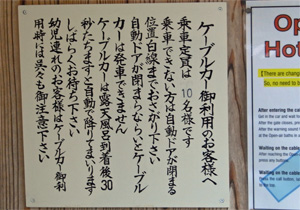 ケーブルカー御利用のお客様へ
乗車定員は 10名様です
乗車できない方は自動ドアが閉まる
位置白線までおさがり下さい
自動ドアが閉まらないとケーブル
カーは発車できません
ケーブルカーは露天風呂到着後30
秒たちますと自動で降りてまいります
しばらくお待ち下さい
幼児連れのお客様はケーブルカー御利
用時には呉々も御注意下さい
Op
Hot
【There are chang
So, no need to b
After entering the ca
After reaching the Open